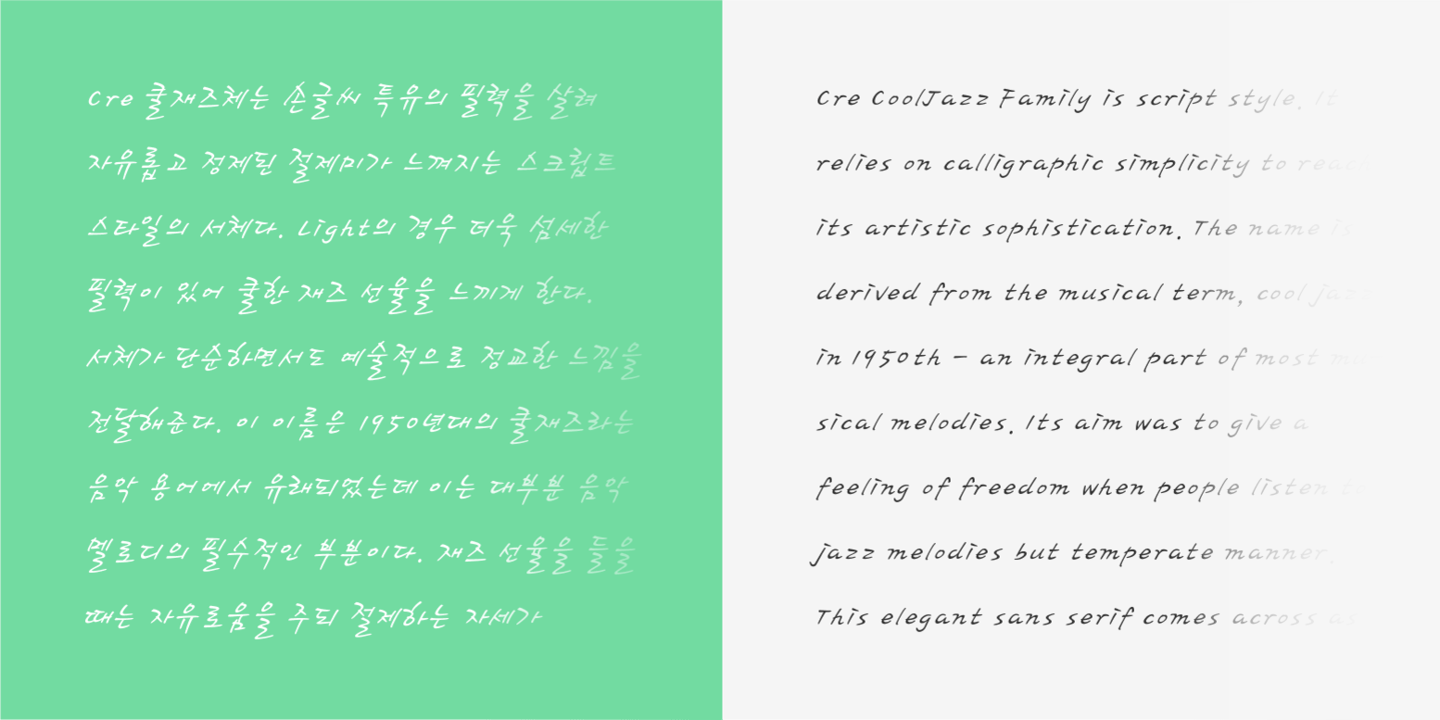 Cre 쿨재즈체는 손글씨 특유의 필력을 살려
자유롭고 정제된 절제미가 느껴지는 스크립트
스타일의 서체다. Light의 경우 더욱 섬세한
필력이 있어 쿨한 재즈 선율을 느끼게 한다.
서체가 단순하면서도 예술적으로 정교한 느낌을
전달해준다. 이 이름은 1950년대의 쿨재즈라는
음악 용어에서 유래되었는데 이는 대부분 음악
멜로디의 필수적인 부분이다. 재즈 선율을 들을
때는 자유로움을 주되 절제하는 자세가
Cre CoolJazz Family is script style. It
relies on calligraphic simplicity to reach
its artistic sophistication. The name is
derived from the musical term, cool jazz
in 1950th – an integral part of most mu
sical melodies. Its aim was to give a
feeling of freedom when people listen to
jazz melodies but temperate manner.
This elegant sans serif comes across as